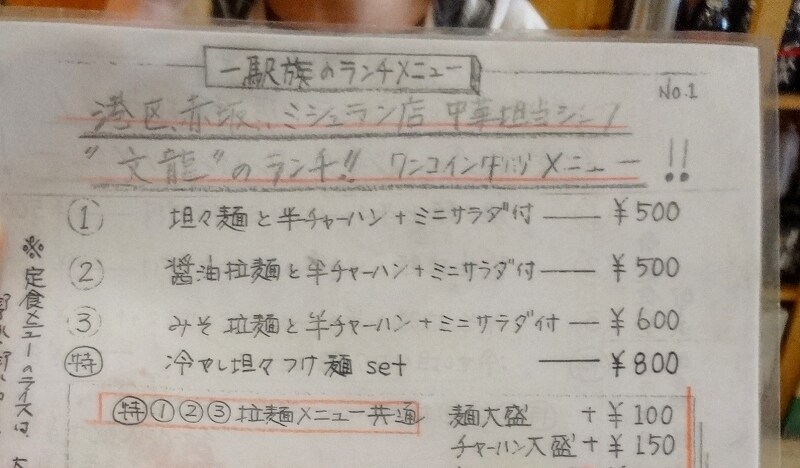 一駅族のランチメニュー
No.1
港区、赤坂、ミシュラン店 中華担当シェフ
"文龍"のランチ!! ワンコインタンタンメニュー !!
① 坦々麺と半チャーハン+ミニサラダ付 —— ¥500
② 醤油拉麺と半チャーハン+ミニサラダ付 —— ¥500
③ みそ拉麺と半チャーハン+ミニサラダ付 — ¥600
特 冷やし坦々つけ麺 set —— ¥800
特①②③拉麺メニュー共通 麺大盛 +¥100
チャーハン大盛 +¥150
※定食メニューのライスは、大